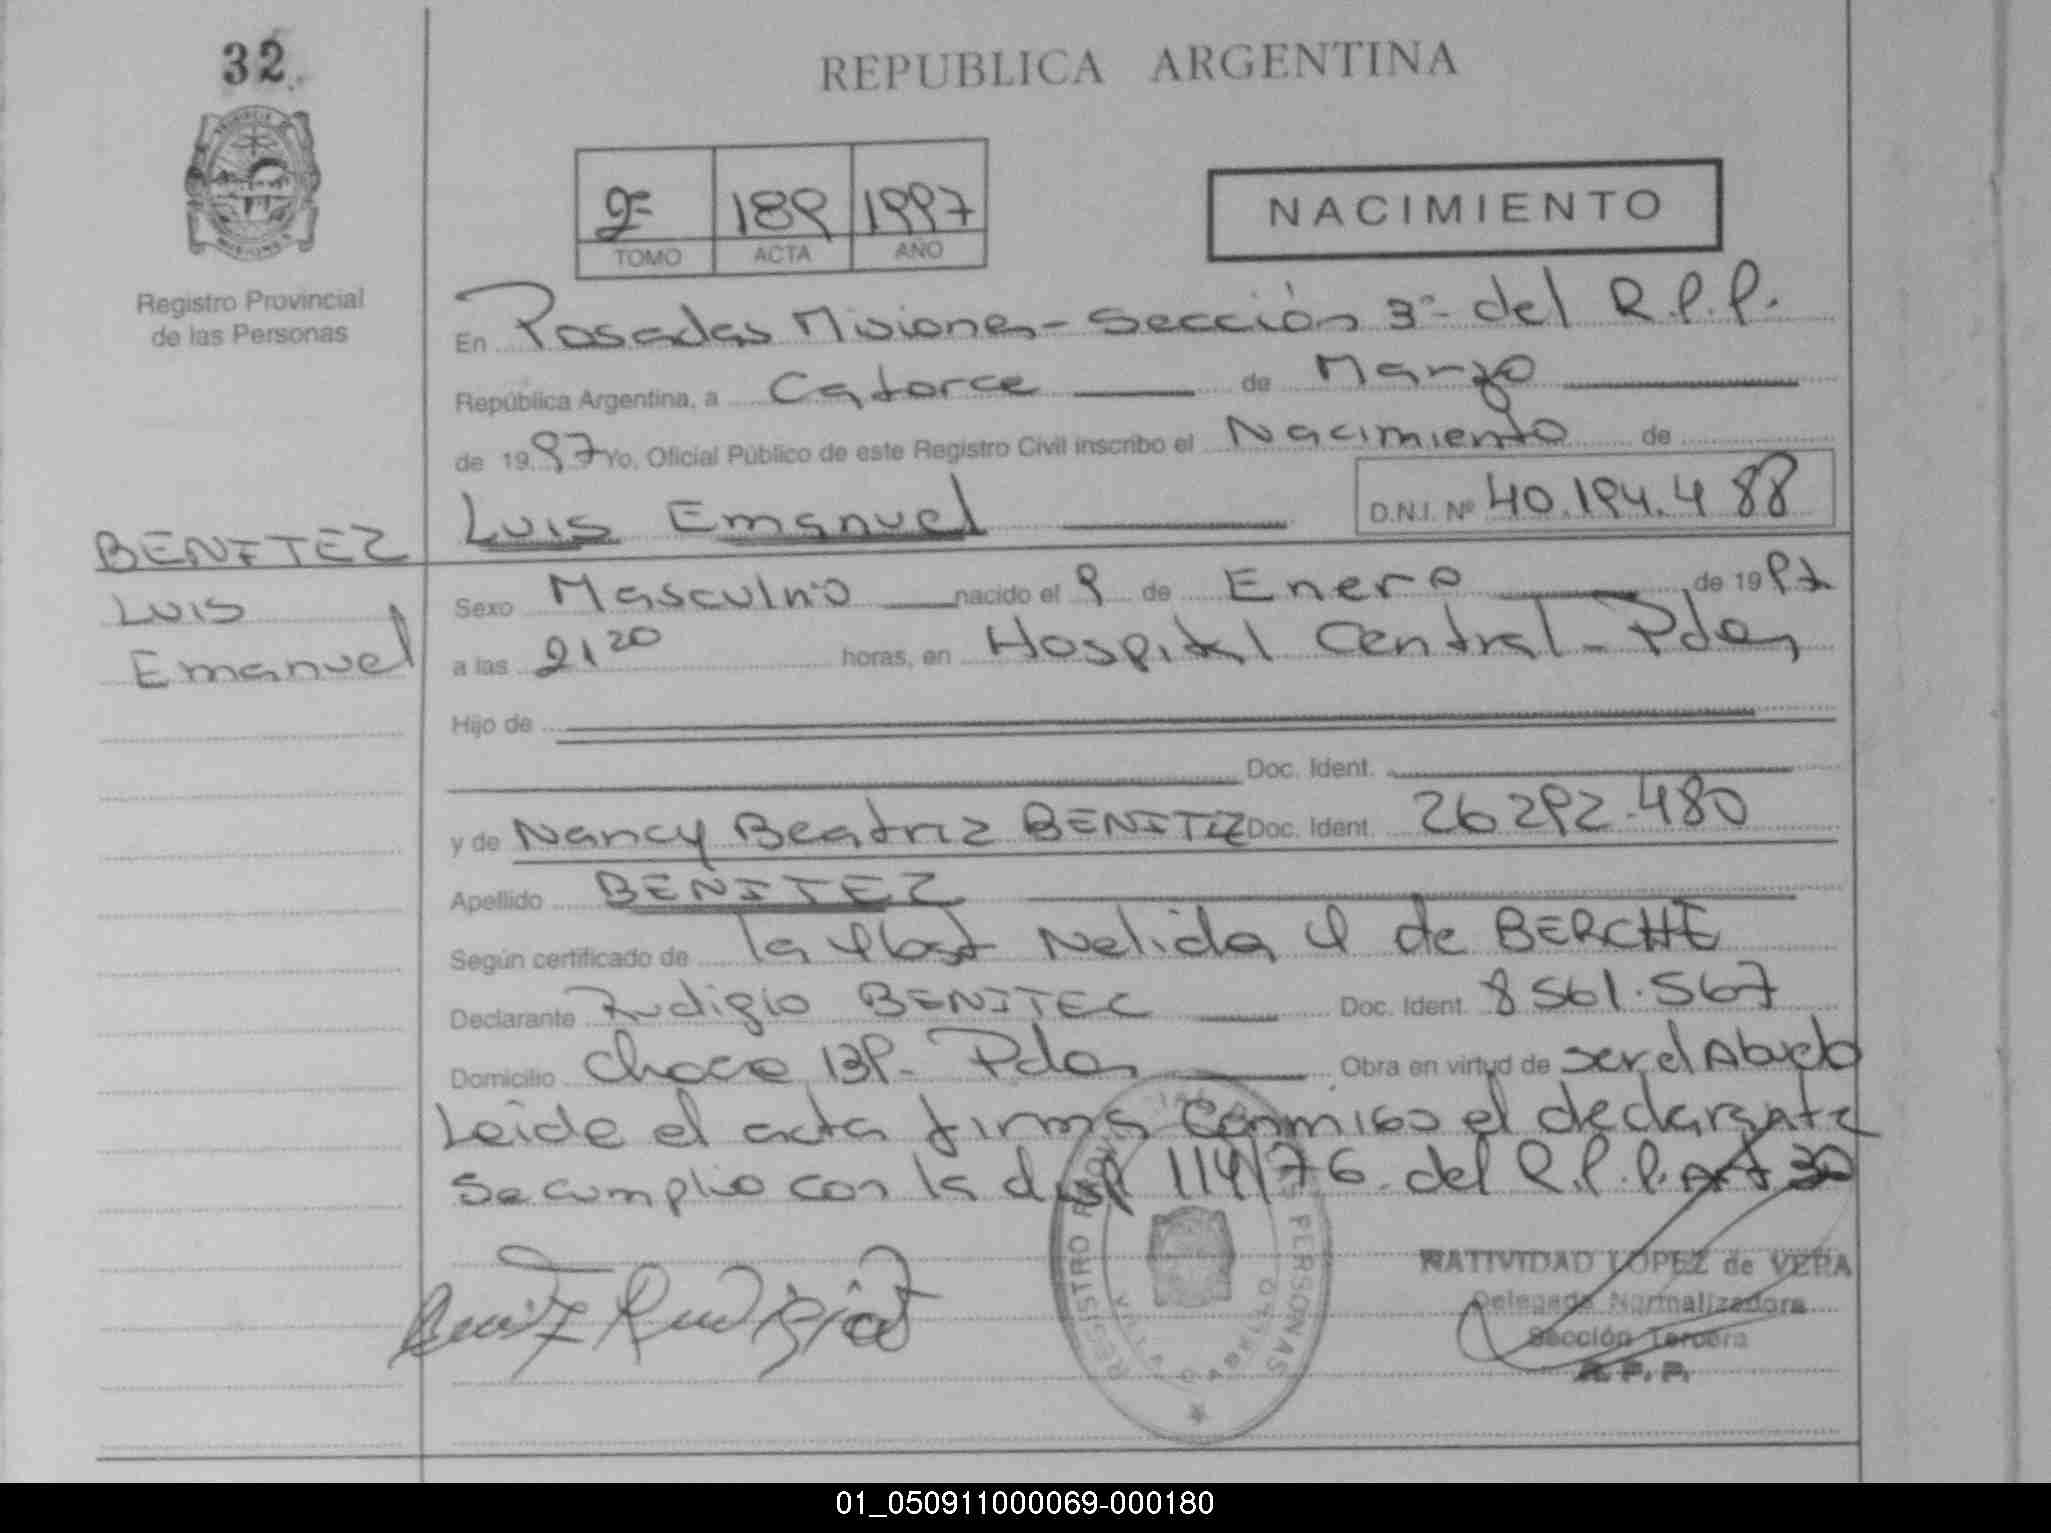 32
REPUBLICA ARGENTINA
2º 189 1997
TOMO ACTA AÑO
NACIMIENTO
Registro Provincial
de las Personas
En Posadas Misiones - Sección 3º del R.P.P.
República Argentina, a Catorce de Marzo
de 1997 Yo, Oficial Público de este Registro Civil inscribo el Nacimiento de
Luis Emanuel D.N.I. Nº 40.194.488
BENITEZ
Luis
Emanuel
Sexo Masculino nacido el 9 de Enero de 1997
a las 21 20 horas, en Hospital Central - Pdas
Hijo de
Doc. Ident.
y de Nancy Beatriz BENITEZ Doc. Ident. 26292.480
Apellido BENITEZ
Según certificado de la Nelida de BERCHE
Declarante Rudigio BENITEZ Doc. Ident. 8561.567
Domicilio Pdas Obra en virtud de ser el Abuelo
Leide el acta firma conmigo el declarante
Se cumplio con la 114/76 del R.P.P. Art 30
REGISTRO PERSONAS
NATIVIDAD LOPEZ de VERA
Delegada Normalizadora
Sección Tercera
R.P.P.
01_050911000069-000180